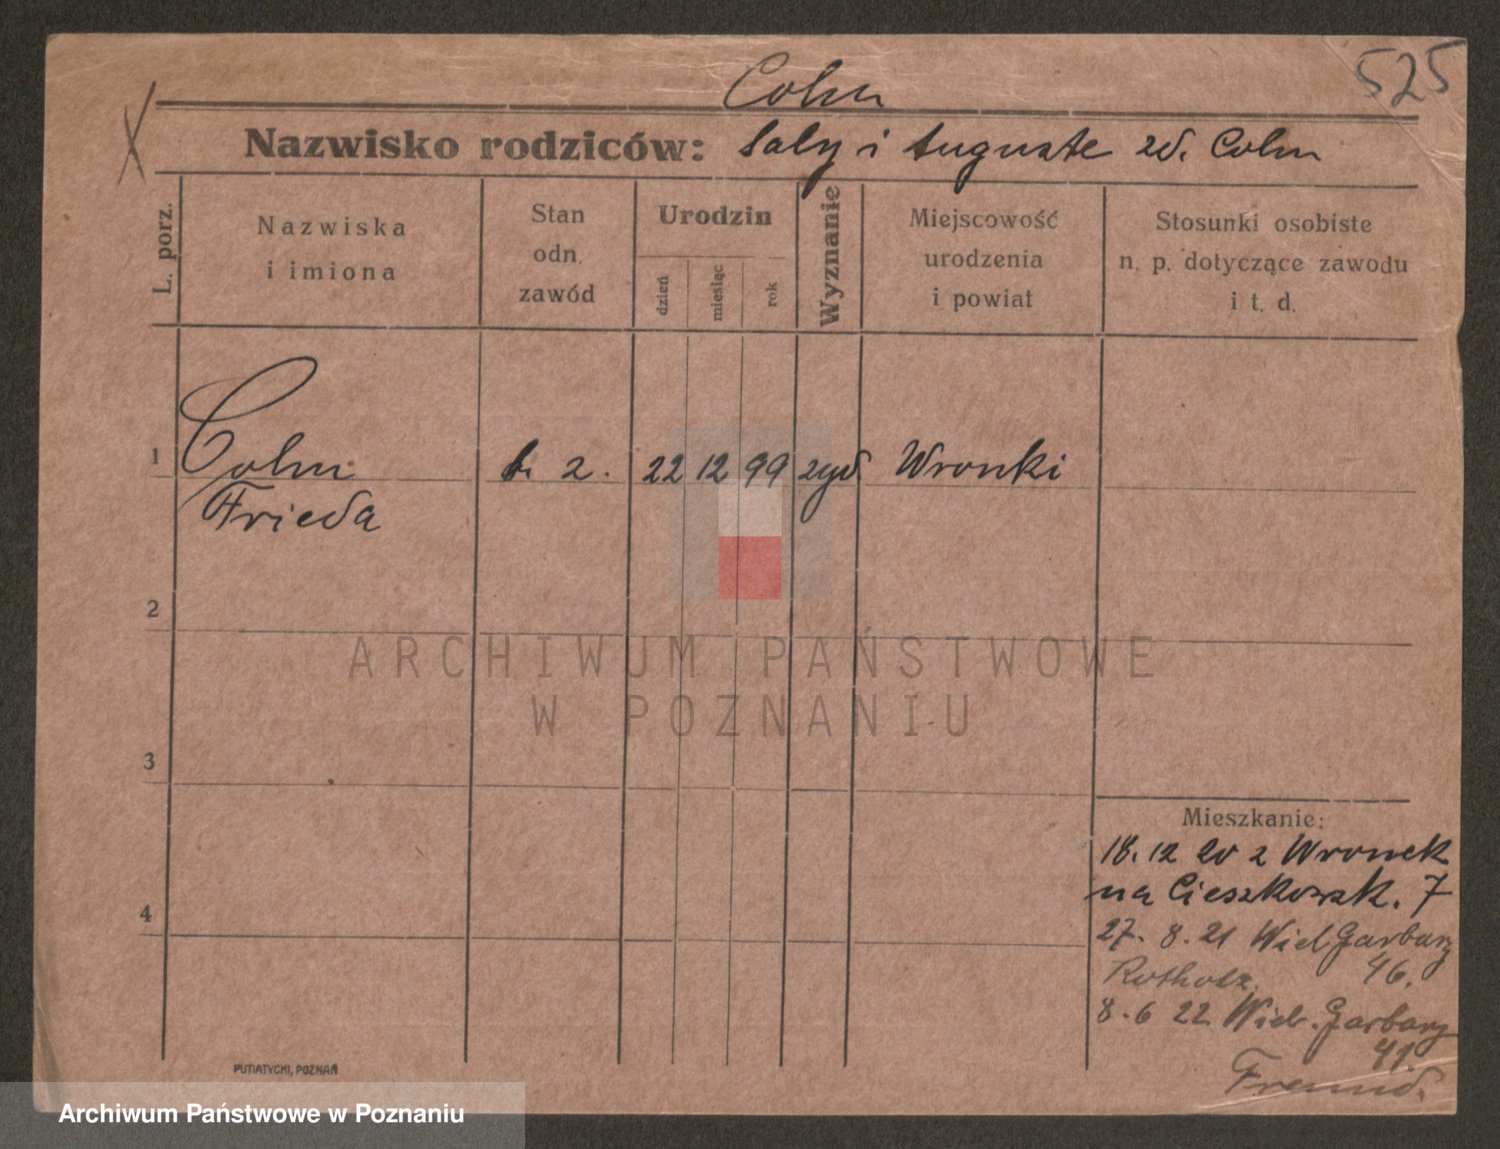 525
Cohn
Nazwisko rodziców: Saly i Auguste zd. Cohn
L. porz.
Nazwiska i imiona
Stan odn. zawód
Urodzin
dzień
miesiąc
rok
Wyznanie
Miejscowość urodzenia i powiat
Stosunki osobiste n. p. dotyczące zawodu i t. d.
1 Cohn b. z. 22 12 99 żyd. Wronki
Frieda
2
3
4
Mieszkanie:
18. 12 20 z Wronek
na Cieszkowsk. 7
27. 8. 21 Wiel Garbary
Rotholz. 46.
8. 6 22 Wiel. Garbary
41.
Freund.
PUTIATYCKI, POZNAŃ
ARCHIWUM PAŃSTWOWE
W POZNANIU
Archiwum Państwowe w Poznaniu